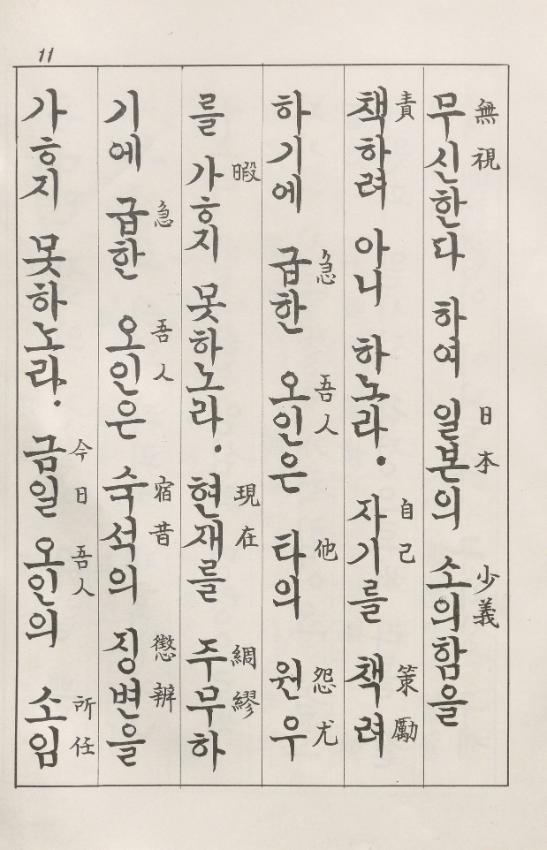 11
무신한다 하여 일본의 소의함을
無視 日本 少義
책하려 아니 하노라. 자기를 책려
責 自己 策勵
하기에 급한 오인은 타의 원우
急 吾人 他 怨尤
를 가ㅎ지 못하노라. 현재를 주무하
暇 現在 綢繆
기에 급한 오인은 숙석의 징변을
急 吾人 宿昔 懲辨
가ㅎ지 못하노라. 금일 오인의 소임
今日 吾人 所任